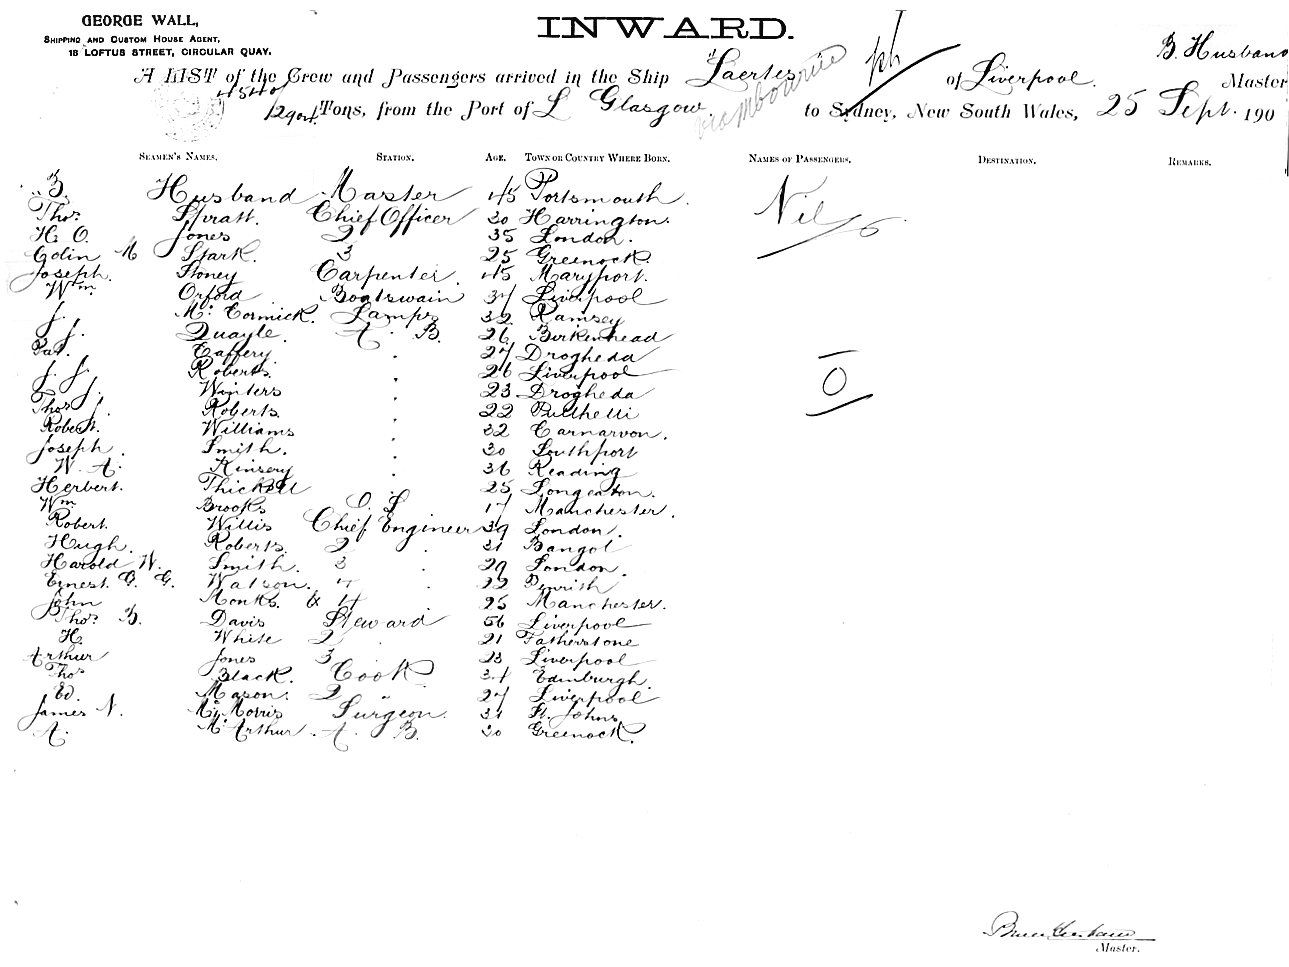 GEORGE WALL,
SHIPPING AND CUSTOM HOUSE AGENT,
18 LOFTUS STREET, CIRCULAR QUAY.
INWARD.
A LIST of the Crew and Passengers arrived in the Ship "Laertes of Liverpool. B. Husband Master
4540 Tons, from the Port of L Glasgow via Melbourne to Sydney, New South Wales, 25 Sept. 190
SEAMEN'S NAMES. STATION. AGE. TOWN OR COUNTRY WHERE BORN. NAMES OF PASSENGERS. DESTINATION. REMARKS.
B. Husband Master 45 Portsmouth. Nil
Thos. Spratt. Chief Officer 30 Harrington.
H. O. Jones 2 35 London.
Colin M Stark. 3 25 Greenock.
Joseph. Stoney Carpenter. 45 Maryport.
Wm. Orford Boatswain 34 Liverpool
J. McCormick. Lamps 32 Ramsey
J. J. Quayle. A. B. 26 Birkenhead
Pat. Caffery. " 27 Drogheda
J. J. Roberts. " 26 Liverpool
J. Winters " 23 Drogheda
Thos J. Roberts " 22 Pwllheli
Robert. Williams " 32 Carnarvon.
Joseph. Smith. " 30 Southport
W. A. Kinsey " 36 Reading
Herbert. Thickett " 25 Longeaton.
Wm Brooks O. S 17 Manchester.
Robert. Willis Chief Engineer 39 London.
Hugh. Roberts. 2 " 31 Bangor
Harold W. Smith. 3 " 29 London.
Ernest. G. G. Watson. 4 " 22 Penrith
John Monks. 4 25 Manchester.
Thos. B. Davis Steward 56 Liverpool
H. White 2 21 Fatherstone
Arthur Jones 3 23 Liverpool
Thos Black. Cook 34 Edinburgh.
Ed. Mason. 2 " 27 Liverpool
James N. McMorris Surgeon. 31 St. Johns
A. McArthur. A. B. 30 Greenock.
O
Husband
Master.